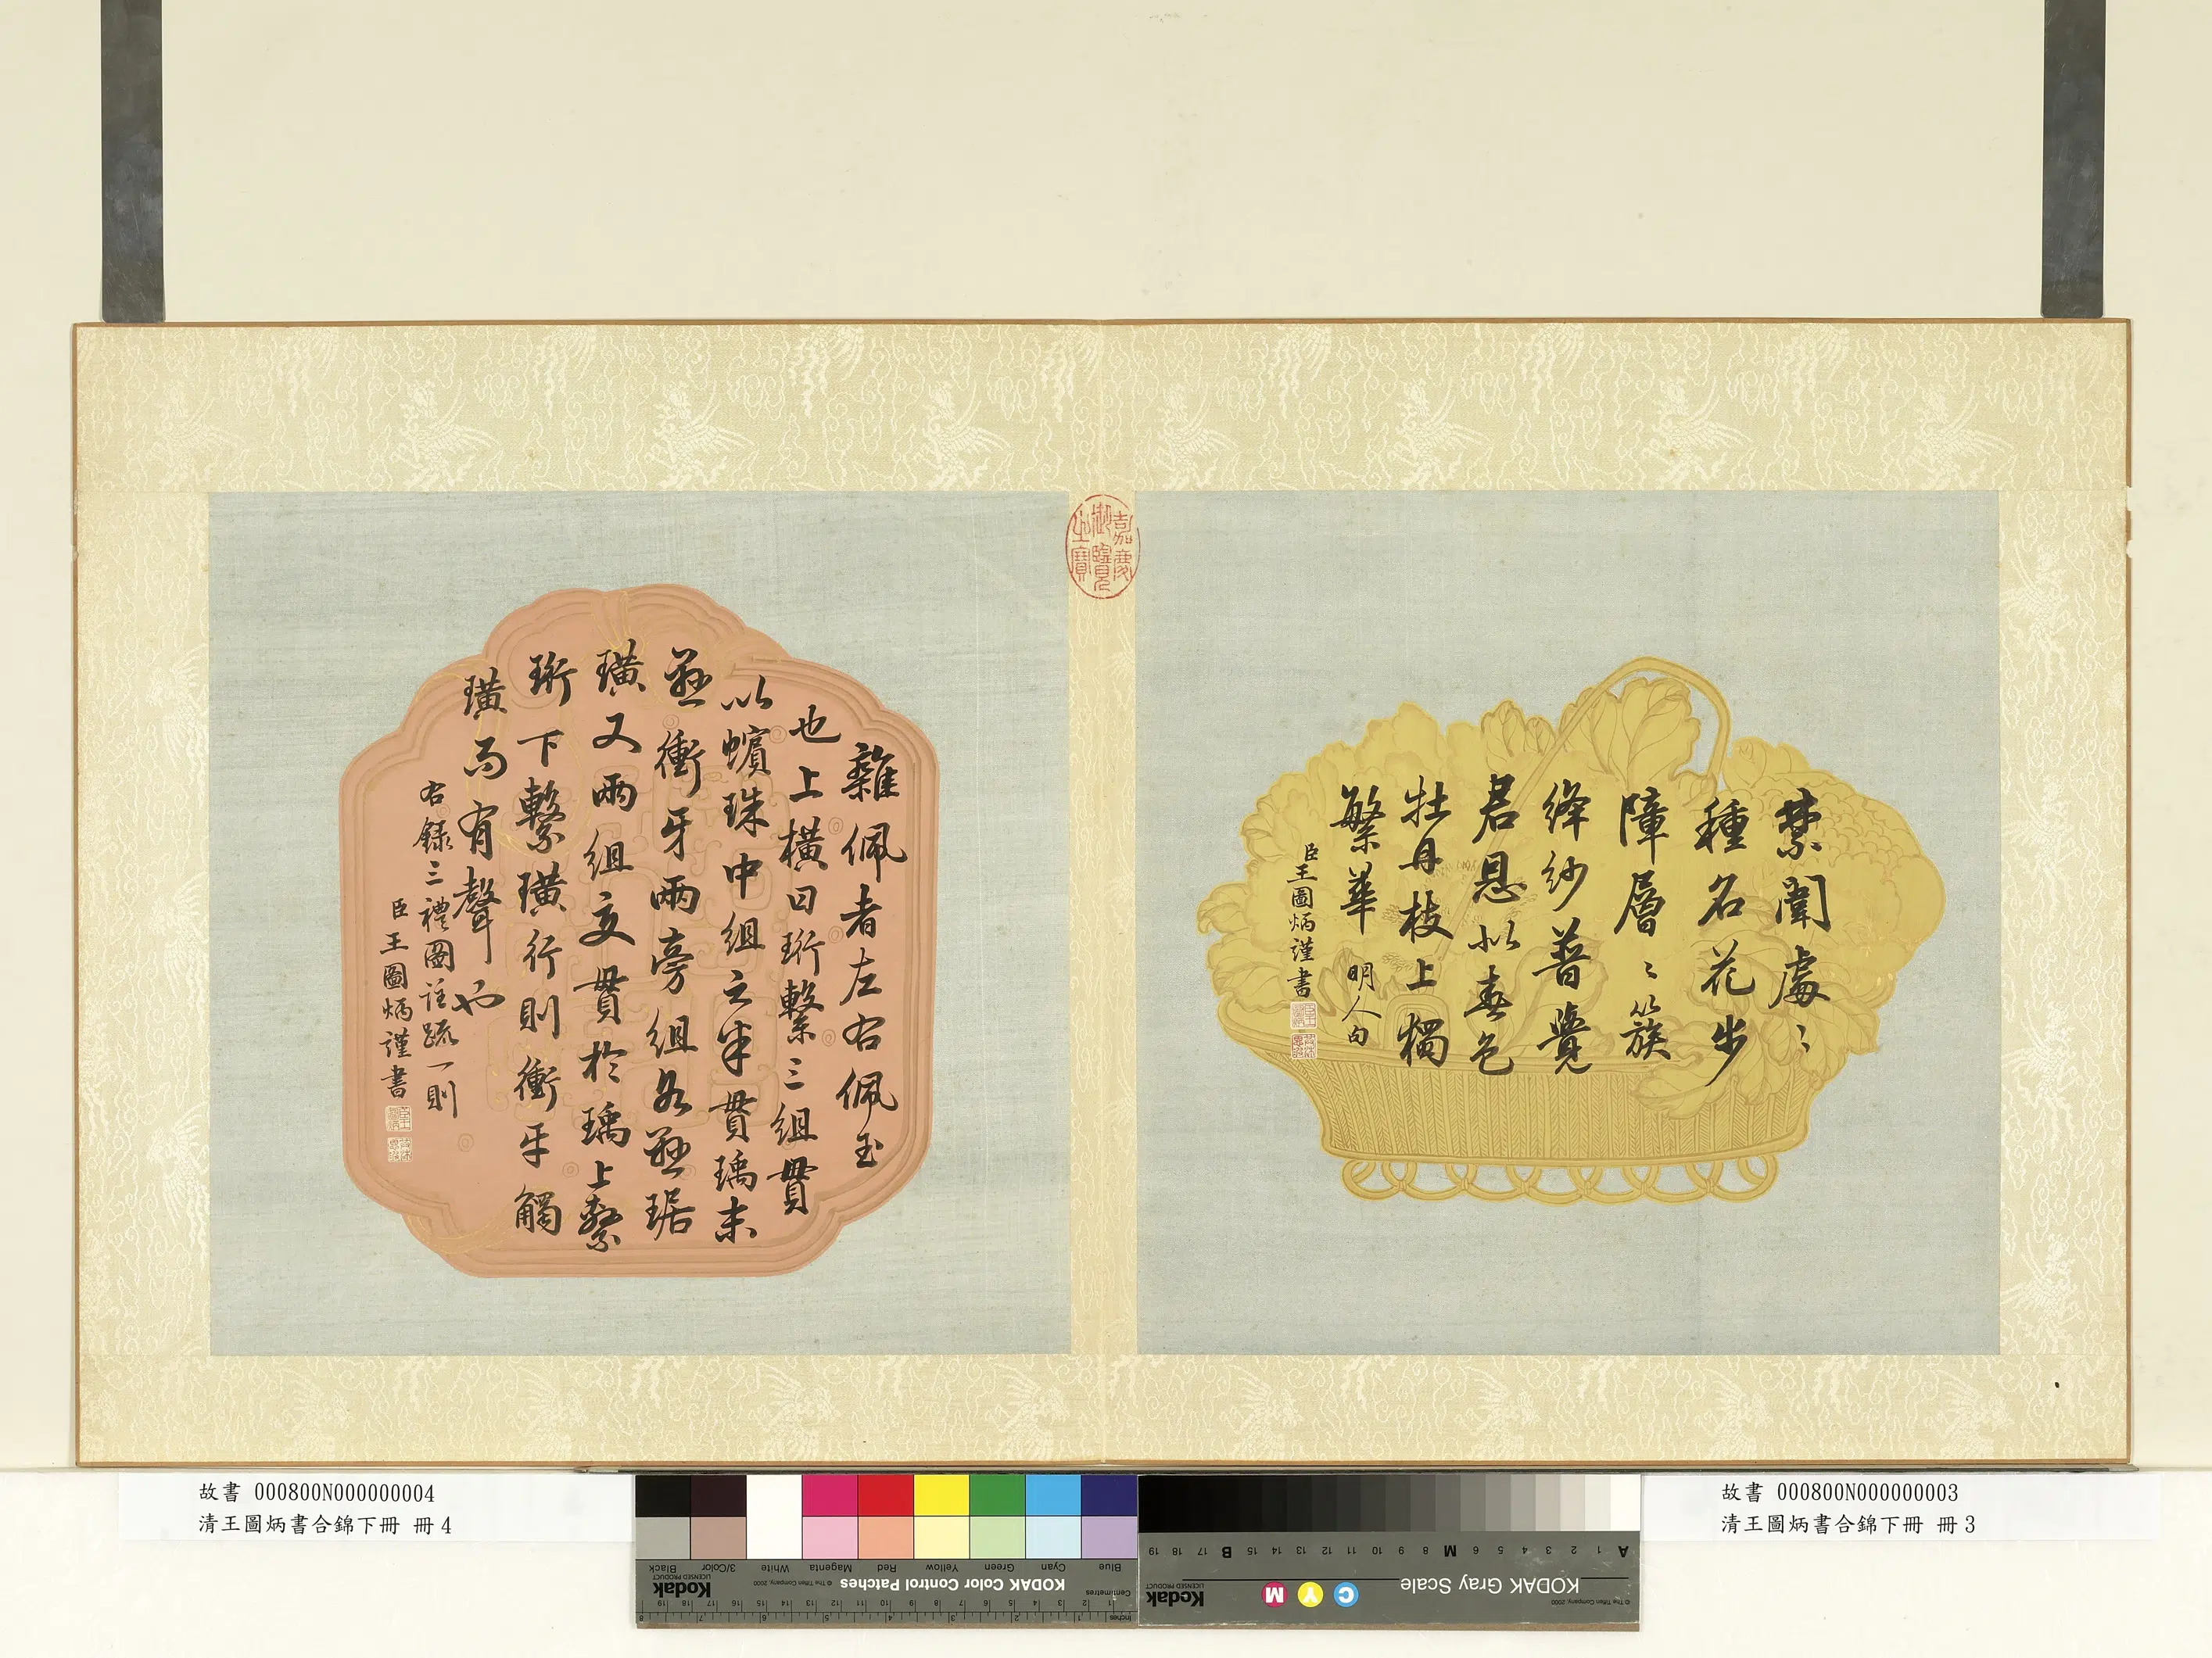 禁闈處〻
種名花步
障層〻簇
絳紗普覺
君恩似春色
牡丹枝上獨
繁華 明人句
臣王圖炳謹書
嘉慶御覽之寶
雜佩者左右佩玉
也上橫曰珩繫三組貫
以蠙珠中組之半貫瑀末
懸衝牙兩旁組各懸琚
璜又兩組交貫於瑀上繫
珩下繫璜行則衝牙觸
璜而有聲也
右錄三禮圖註疏一則
臣王圖炳謹書
故書 000800N000000004
清王圖炳書合錦下冊 冊4
故書 000800N000000003
清王圖炳書合錦下冊 冊3
Blue Cyan Green Yellow Red Magenta White 3/Color Black
KODAK Color Control Patches
© The Tiffen Company, 2000
Kodak
LICENSED PRODUCT
Centimetres
Inches
A 1 2 3 4 5 6 M 8 9 10 11 12 13 14 15 B 17 18 19
KODAK Gray Scale
C Y M
Kodak
LICENSED PRODUCT
© The Tiffen Company, 2000